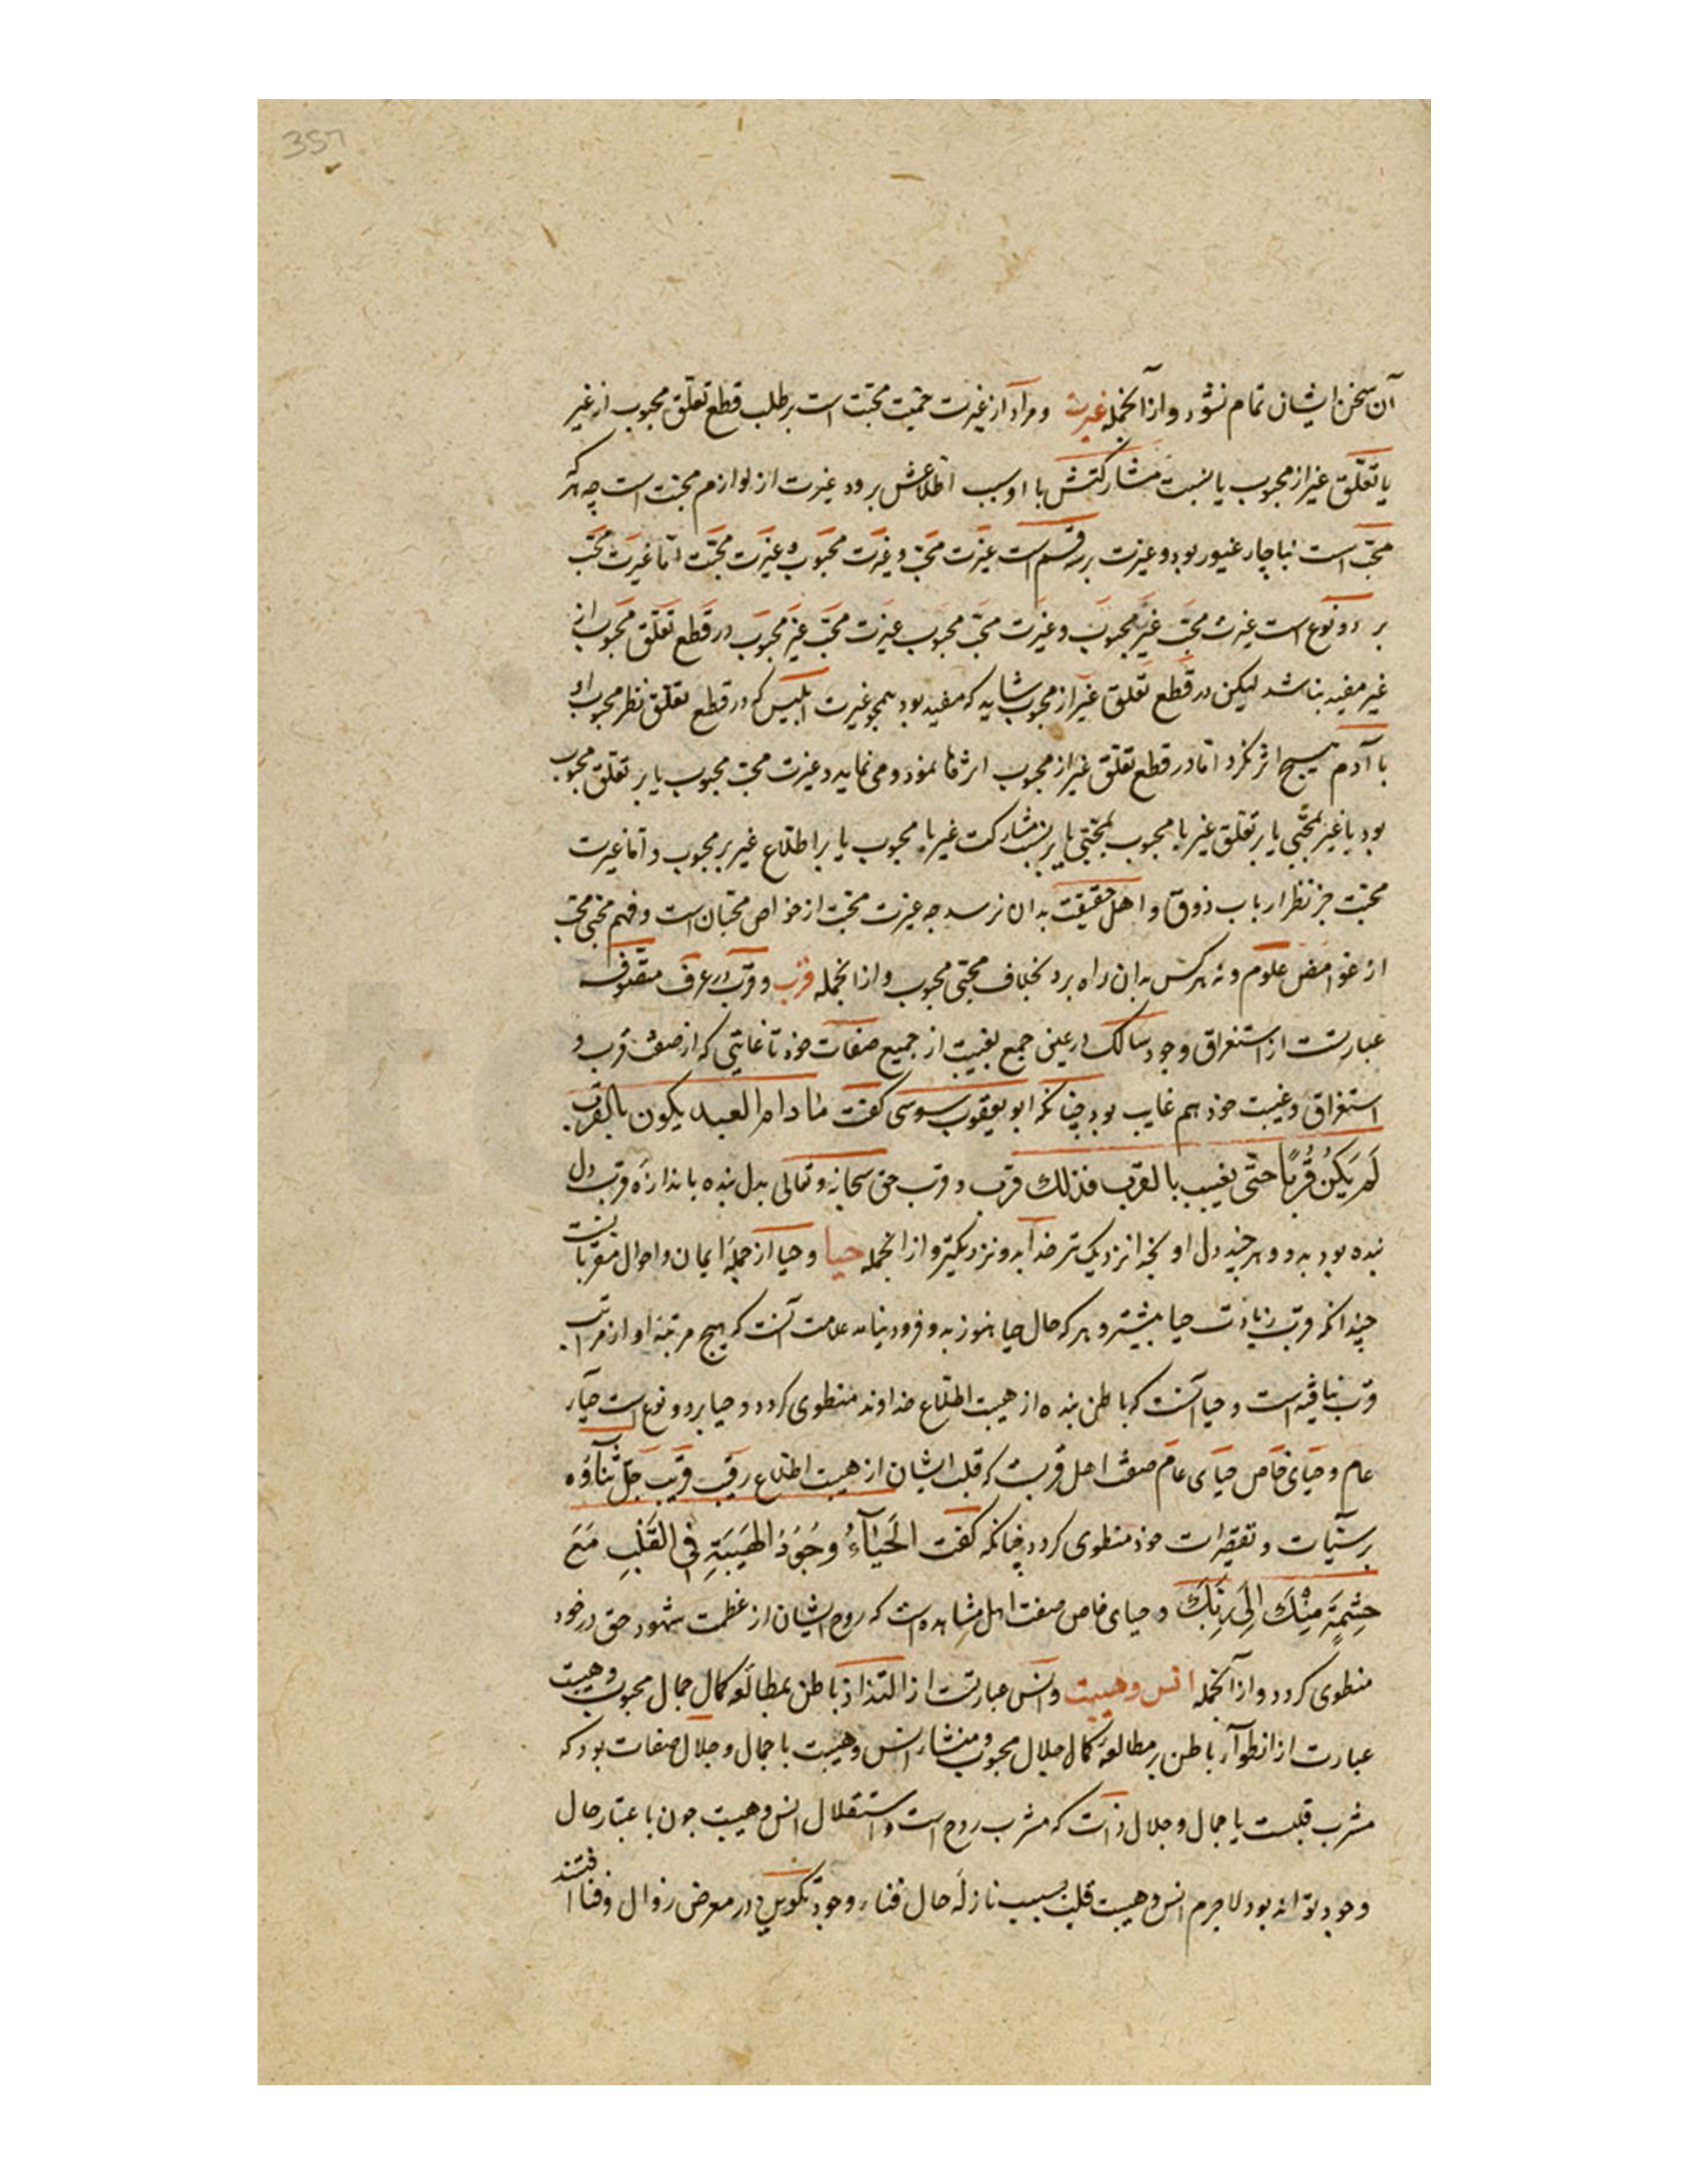 357
آن سخن ایشان تمام نشود و از آنجمله غیرت و مراد از غیرت حمیت محبت است بر طلب قطع تعلق محبوب از غیر
یا تعلق غیر از محبوب یا نسبت مشارکتش با او بسبب اطلاعش برو و غیرت از لوازم محبت است چه هر که
محب است ناچار غیور بود و غیرت بر سه قسم است غیرت محب و غیرت محبوب و غیرت محبت اما غیرت محب
بر دو نوع است غیرت محب غیر محبوب و غیرت محب محبوب غیرت محب غیر محبوب در قطع تعلق محبوب از
غیر مفید نباشد لیکن در قطع تعلق غیر از محبوب شاید که مفید بود همچو غیرت ابلیس که در قطع تعلق نظر محبوب او
با آدم هیچ اثر نکرد اما در قطع تعلق غیر از محبوب اثرها نمود و می نماید و غیرت محب محبوب یا بر تعلق محبوب
بود با غیر بمحبی یا بر تعلق غیر با محبوب بمحبتی یا بر نسبت مشارکت غیر با محبوب یا بر اطلاع غیر بر محبوب و اما غیرت
محبت جز نظر ارباب ذوق و اهل حقیقت بدان نرسد چه غیرت محبت از خواص محبان است و فهم محبی محب
از غوامض علوم و نه هر کس بدان راه برد بخلاف محبی محبوب و از انجمله قرب و قرب در عرف متصوفه
عبارتست از استغراق وجود سالک در عین جمع بغیبت از جمیع صفات خود تا غایتی که از صفت قرب و
استغراق و غیبت خود هم غایب بود چنانکه ابو یعقوب سوسی گفت ما دام العبد یکون بالقرب
لَم یَکُن قُربًا حتّی یغیب بالقرب فذلک قرب و قرب حق سبحانه و تعالی بدل بنده باندازهٔ قرب دل
بنده بود بدو و هر چند دل او بخدا نزدیک تر خدا بدو نزدیکتر و از انجمله حیا و حیا از جملهٔ ایمان و احوال مقربانست
چندانکه قرب زیادت حیا بیشتر و هر که حال حیا هنوز بدو فرود نیامد علامت آنست که هیچ مرتبه او از مراتب
قرب نیافته است و حیا آنست که باطن بنده از هیبت اطلاع خداوند منطوی گردد و حیا بر دو نوع است حیاء
عام و حیای خاص حیای عام صفت اهل قربت که قلب ایشان از هیبت اطلاع رقیب قریب جلّ ثناؤه
بر سیّآت و تقصیرات خود منطوی گردد چنانکه گفت الحَیآءُ وُجُودُ الهَیبَةِ فِی القَلبِ مَعَ
حِشمَةٍ مِنکَ اِلی رَبِّکَ و حیای خاص صفت اهل مشاهده است که روح ایشان از عظمت شهود حق در خود
منطوی گردد و از آنجمله انس و هیبت و انس عبارتست از التذاذ باطن بمطالعه کمال جمال محبوب و هیبت
عبارت از انطوآء باطن بر مطالعهٔ کمال جلال محبوب و منشاء انس و هیبت با جمال و جلال صفات بود که
مشرب قلبست یا جمال و جلال ذات که مشرب روح است و استقلال انس و هیبت چون باعتبار حال
وجود تواند بود لاجرم انس و هیبت قلب بسبب نازلهٔ حال فناء وجود تکوین در معرض زوال و فنا افتند